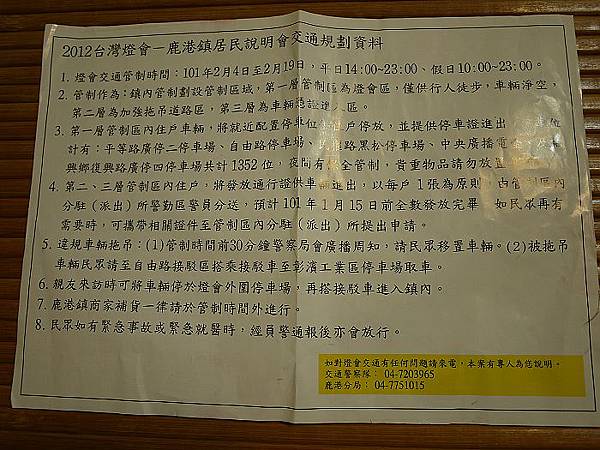 2012台灣燈會－鹿港鎮居民說明會交通規劃資料
1. 燈會交通管制時間：101年2月4日至2月19日，平日14:00~23:00、假日10:00~23:00。
2. 管制作為：鎮內管制劃設管制區域，第一層管制區為燈會區，僅供行人徒步，車輛淨空，
第二層為加強拖吊道路區，第三層為車輛憑證進入區。
3. 第一層管制區內住戶車輛，將就近配置停車位 住戶停放，並提供停車證進出 位
計有：平等路廣停二停車場、自由路停車場、民權路黑松停車場、中央廣播電 放
興鄉復興路廣停四停車場共計1352位，夜間有 全管制，貴重物品請勿放置
4. 第二、三層管制區內住戶，將發放通行證供車輛進出，以每戶1張為原則，由管制區內
分駐（派出）所警勤區警員分送，預計101年1月15日前全數發放完畢 如民眾再有
需要時，可攜帶相關證件至管制區內分駐（派出）所提出申請。
5. 違規車輛拖吊：(1)管制時間前30分鐘警察局會廣播周知，請民眾移置車輛。(2)被拖吊
車輛民眾請至自由路接駁區搭乘接駁車至彰濱工業區停車場取車。
6. 親友來訪時可將車輛停於燈會外圍停車場，再搭接駁車進入鎮內。
7. 鹿港鎮商家補貨一律請於管制時間外進行。
8. 民眾如有緊急事故或緊急就醫時，經員警通報後亦會放行。
如對燈會交通有任何問題請來電，本案有專人為您說明。
交通警察隊： 04-7203965
鹿港分局： 04-7751015